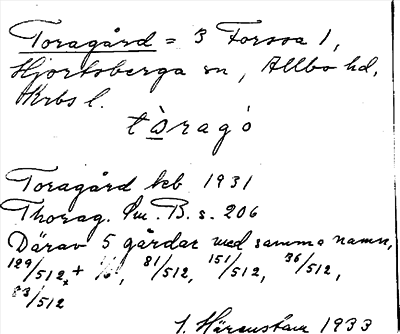 Toragård = 3 Forssa 1,
Hjortsberga sn, Allbo hd,
Krbs l.
tòragó
Toragård kb 1931
Thorag. Sm. B. s. 206
Därav 5 gårdar med samma namn,
129/512, + 81/512, 151/512, 36/512,
83/512
1933